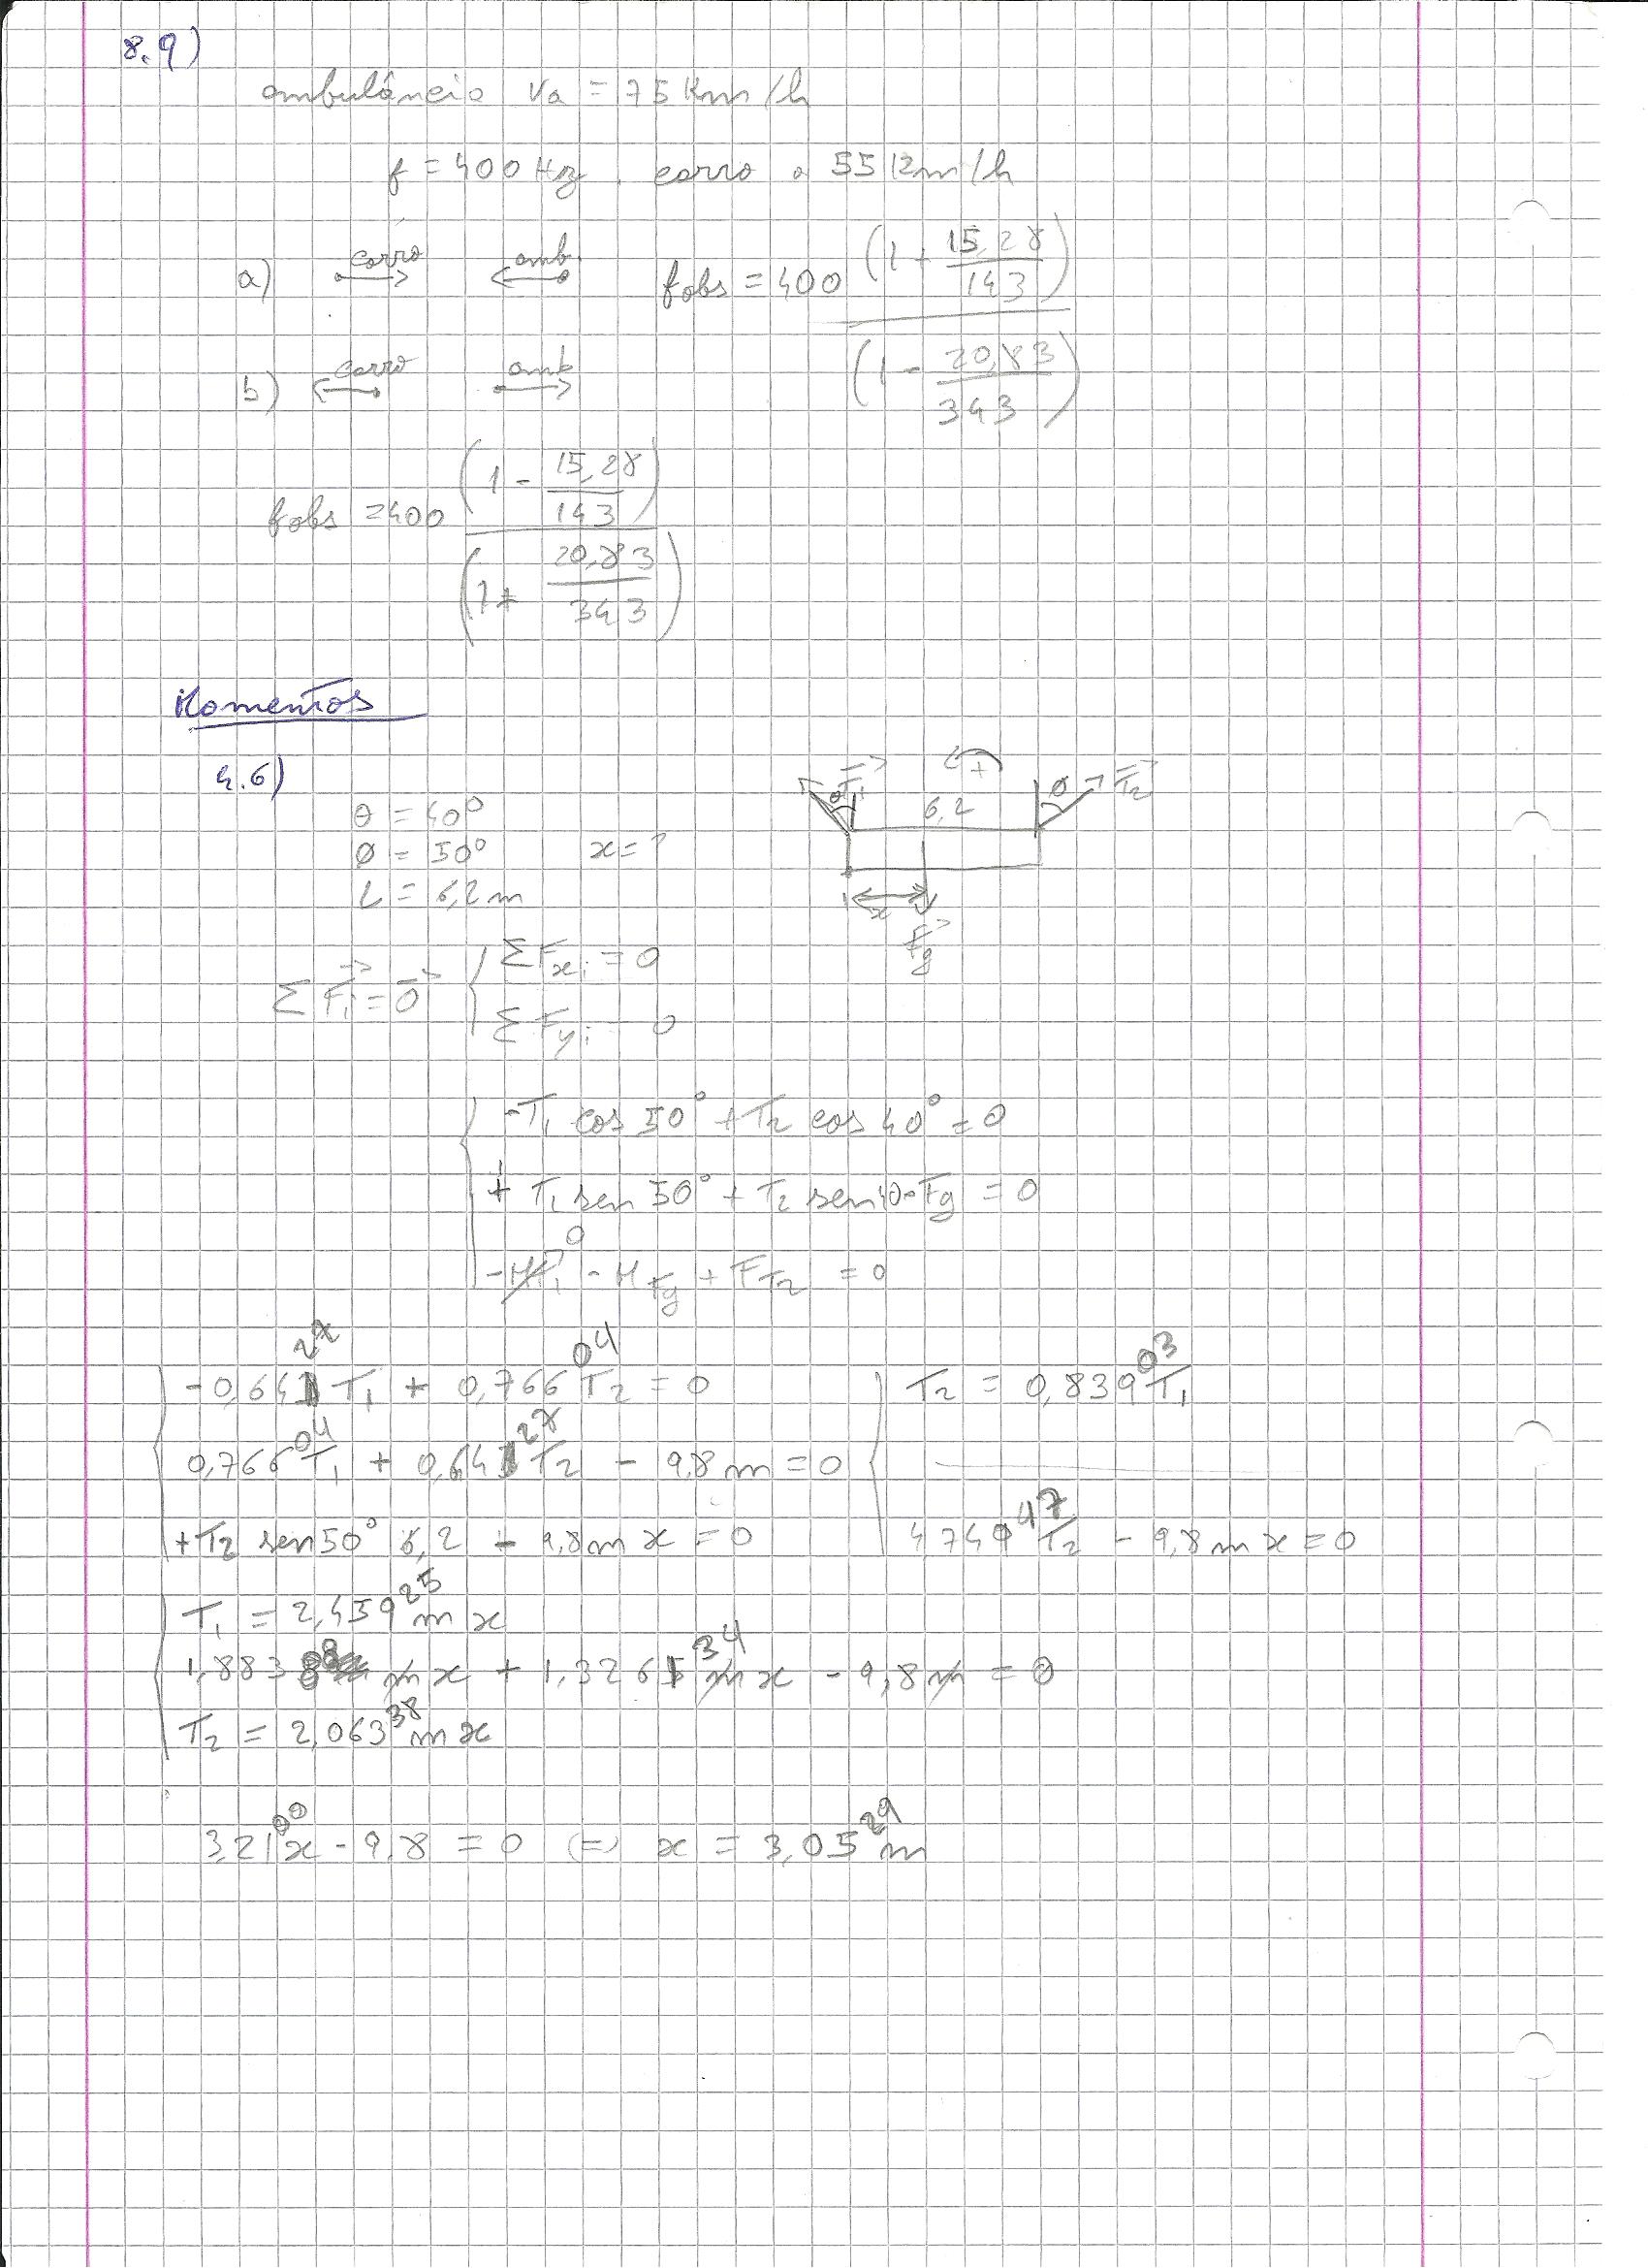 8.9)
ambulância va = 75 Km/h
f = 400 Hz, carro a 55 Km/h
a) carro amb. fobs = 400 (1 + 15,28/143) / (1 - 20,83/343)
b) carro amb
fobs = 400 (1 - 15,28/143) / (1 + 20,83/343)
Momentos
4.6)
T1 + T2
θ θ
6,2
θ = 40°
Ø = 50° x = ?
L = 6,2 m
x
Fg
Σ Fi = 0 { Σ Fxi = 0
Σ Fyi = 0
-T1 cos 50° + T2 cos 40° = 0
+ T1 sen 50° + T2 sen 40 - Fg = 0
0
-MT1 - MFg + FT2 = 0
-0,6427 T1 + 0,76604 T2 = 0 T2 = 0,83903 T1
0,76604 T1 + 0,6427 T2 - 9,8 m = 0
+T2 sen 50° 6,2 - 9,8 m x = 0 4,74947 T2 - 9,8 m x = 0
T1 = 2,45925 m x
1,88388 m x + 1,32634 m x - 9,8 m = 0
T2 = 2,06338 m x
3,2100 x - 9,8 = 0 (=) x = 3,0529 m